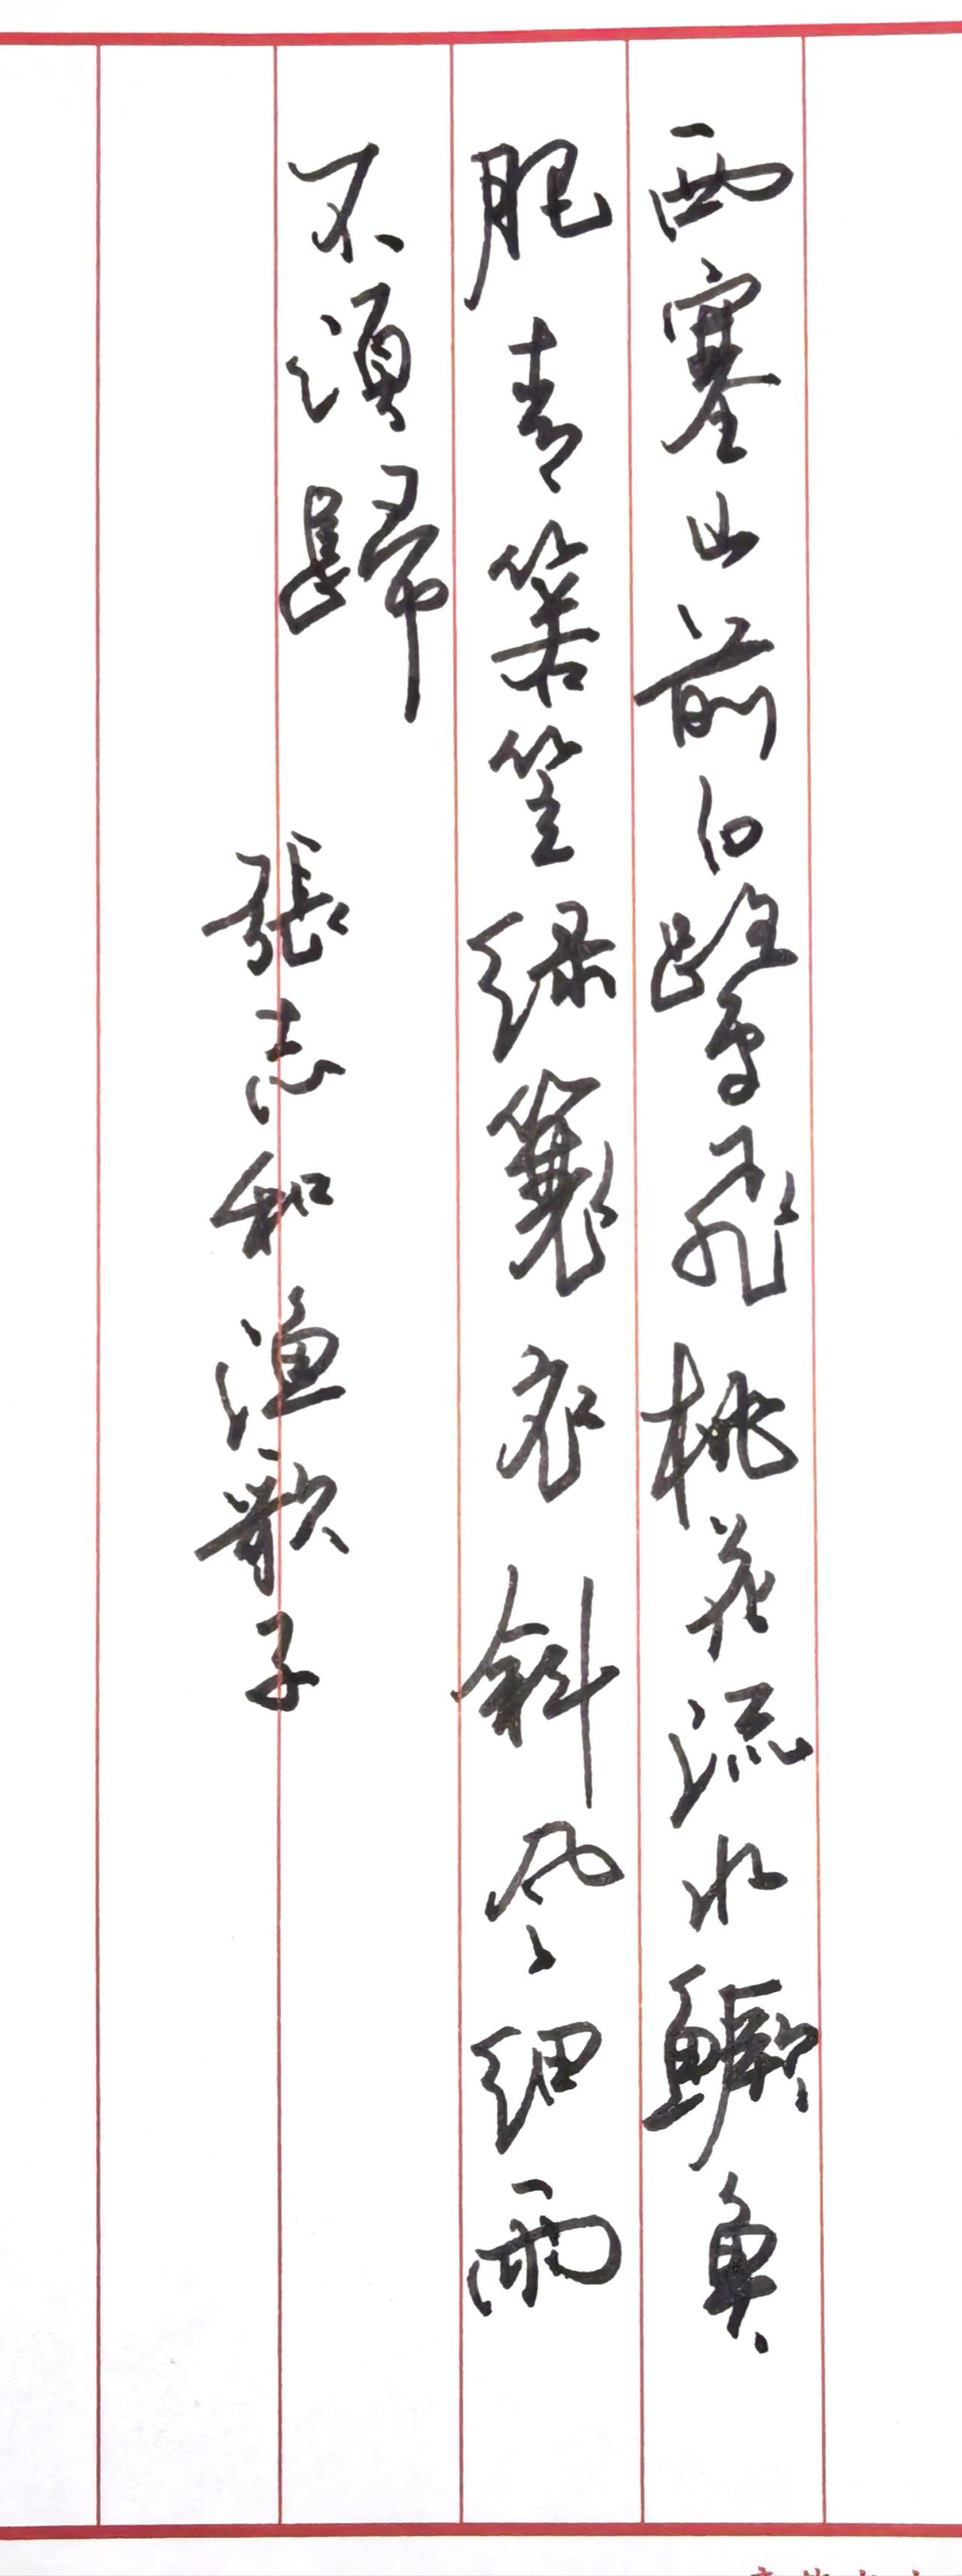 西塞山前白鹭飞桃花流水鳜鱼
肥青箬笠绿蓑衣斜风细雨
不須歸
張志和渔歌子